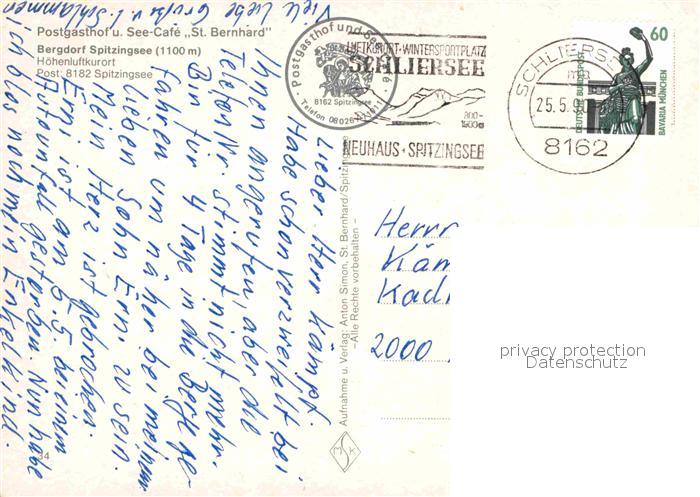 Postgasthof u. See-Café „St. Bernhard"
Bergdorf Spitzingsee (1100 m)
Höhenluftkurort
Post: 8182 Spitzingsee
Postgasthof und See-Café
8162 Spitzingsee
Telefon 08026/
LUFTKURORT · WINTERSPORTPLATZ
SCHLIERSEE
800-
NEUHAUS · SPITZINGSEE
SCHLIERSEE
25.5.9
8162
60
DEUTSCHE BUNDESPOST
BAVARIA MÜNCHEN
Lieber Herr Kämpf.
Habe schon verzweifelt bei
Ihnen angerufen, aber die
Telefon Nr. stimmt nicht mehr.
Bin für 4 Tage in die Berge ge-
fahren um näher bei meinem
lieben Sohn Erni zu sein.
Mein Herz ist gebrochen.
Erni ist am 5.5 bei einem
Autounfall gestorben. Nun habe
ich blos noch mein Enkelkind.
Viele liebe Grüße v. I. Schlammen
Aufnahme u. Verlag: Anton Simon, St. Bernhard/Spitzing
–Alle Rechte vorbehalten –
MSK
Herrn
Käm
Kadi
2000
privacy protection
Datenschutz